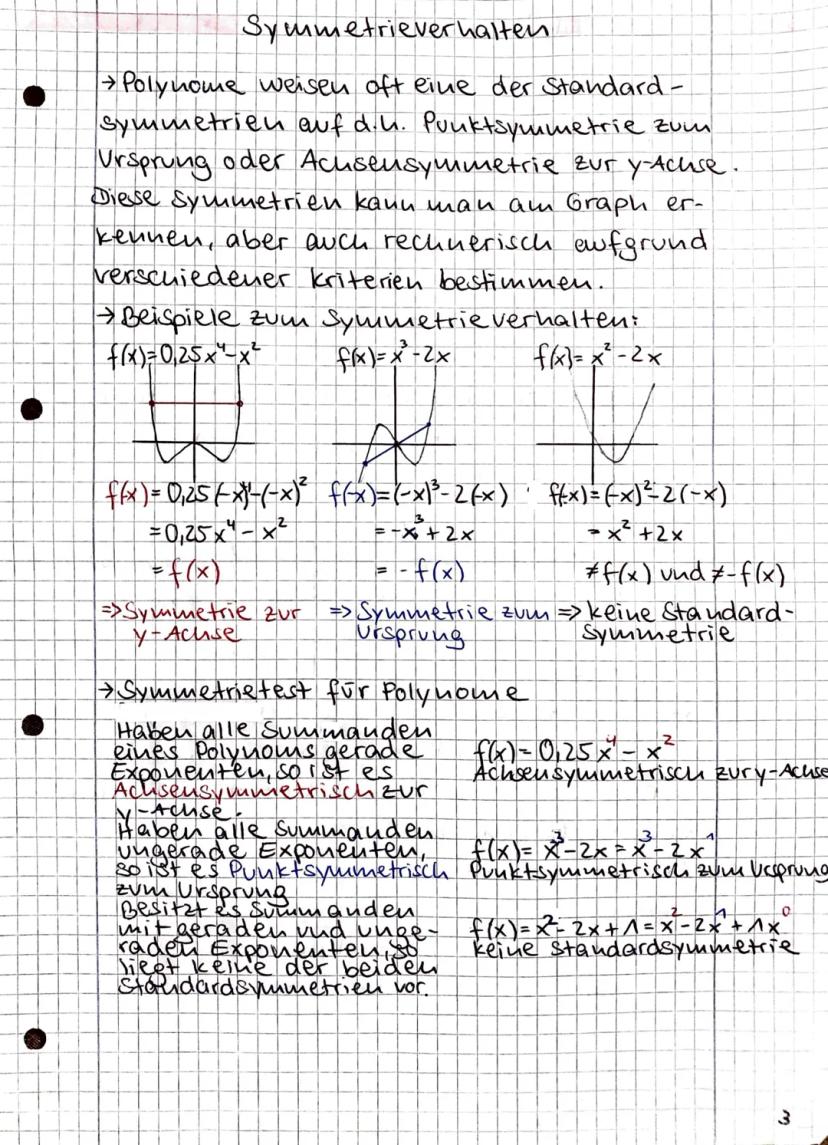 Symmetrieverhalten
→ Polynome weisen oft eine der Standard-
symmetrien auf d.h. Punktsymmetrie zum
Ursprung oder Achsensymmetrie zur y-Achse.
Diese Symmetrien kann man am Graph er-
kennen, aber auch rechnerisch aufgrund
verschiedener Kriterien bestimmen.
→ Beispiele zum Symmetrieverhalten:
f(x)=0,25x⁴-x² f(x)=x³-2x f(x)=x²-2x
f(x)=0,25(-x)⁴-(-x)² f(-x)=(-x)³-2(-x) f(-x)=(-x)²-2(-x)
=0,25x⁴-x² =-x³+2x =x²+2x
=f(x) =-f(x) ≠f(x) und ≠-f(x)
⇒Symmetrie zur ⇒Symmetrie zum ⇒keine Standard-
y-Achse Ursprung symmetrie
→ Symmetrietest für Polynome
Haben alle Summanden
eines Polynoms gerade
Exponenten, so ist es
Achsensymmetrisch zur
y-Achse.
f(x)=0,25x⁴-x²
Achsensymmetrisch zur y-Achse
Haben alle Summanden
ungerade Exponenten,
so ist es Punktsymmetrisch
zum Ursprung
f(x)=x³-2x=x³-2x¹
Punktsymmetrisch zum Ursprung
Besitzt es Summanden
mit geraden und unge-
raden Exponenten, so
liegt keine der beiden
Standardsymmetrien vor.
f(x)=x²-2x+1=x²-2x¹+1x⁰
keine Standardsymmetrie
3